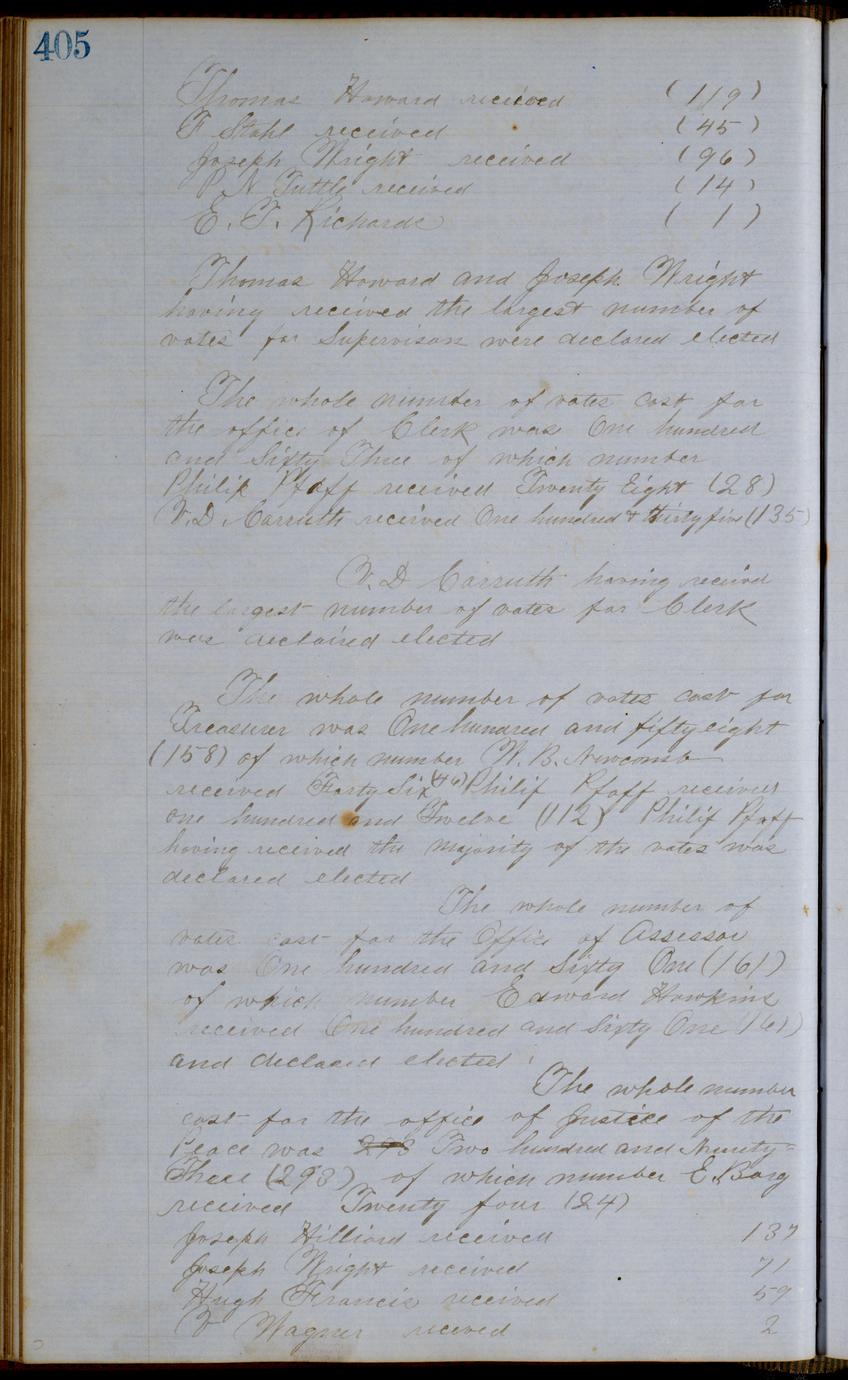 405
Thomas Howard received (119)
F Stahl received (45)
Joseph Wright received (96)
P. N Tuttle received (14)
E. T. Richards ( 1 )
Thomas Howard and Joseph Wright
having received the largest number of
votes for Supervisors were declared elected
The whole number of votes cast for
the office of Clerk was One hundred
and Sixty Three of which number
Philip Pfaff received Twenty Eight (28)
V. D. Carruth received One hundred & thirty five (135)
V. D Carruth having received
the largest number of votes for Clerk
was declaired elected
The whole number of votes cast for
Treasurer was One hundred and fifty eight
(158) of which number W. B. Newcomb
received Forty Six (46) Philip Pfaff received
one hundred and Twelve (112) Philip Pfaff
having received the majority of the votes was
declared elected
The whole number of
votes cast for the Office of Assessor
was One hundred and Sixty One (161)
of which number Edward Hawkins
received One hundred and Sixty One (161)
and declared elected
The whole number
cast for the office of Justice of the
Peace was 293 Two hundred and Ninety-
Three (293) of which number E. Borg
received Twenty four (24)
Joseph Hilliard received 137
Joseph Wright received 71
Hugh Francis received 59
V Wagner received 2